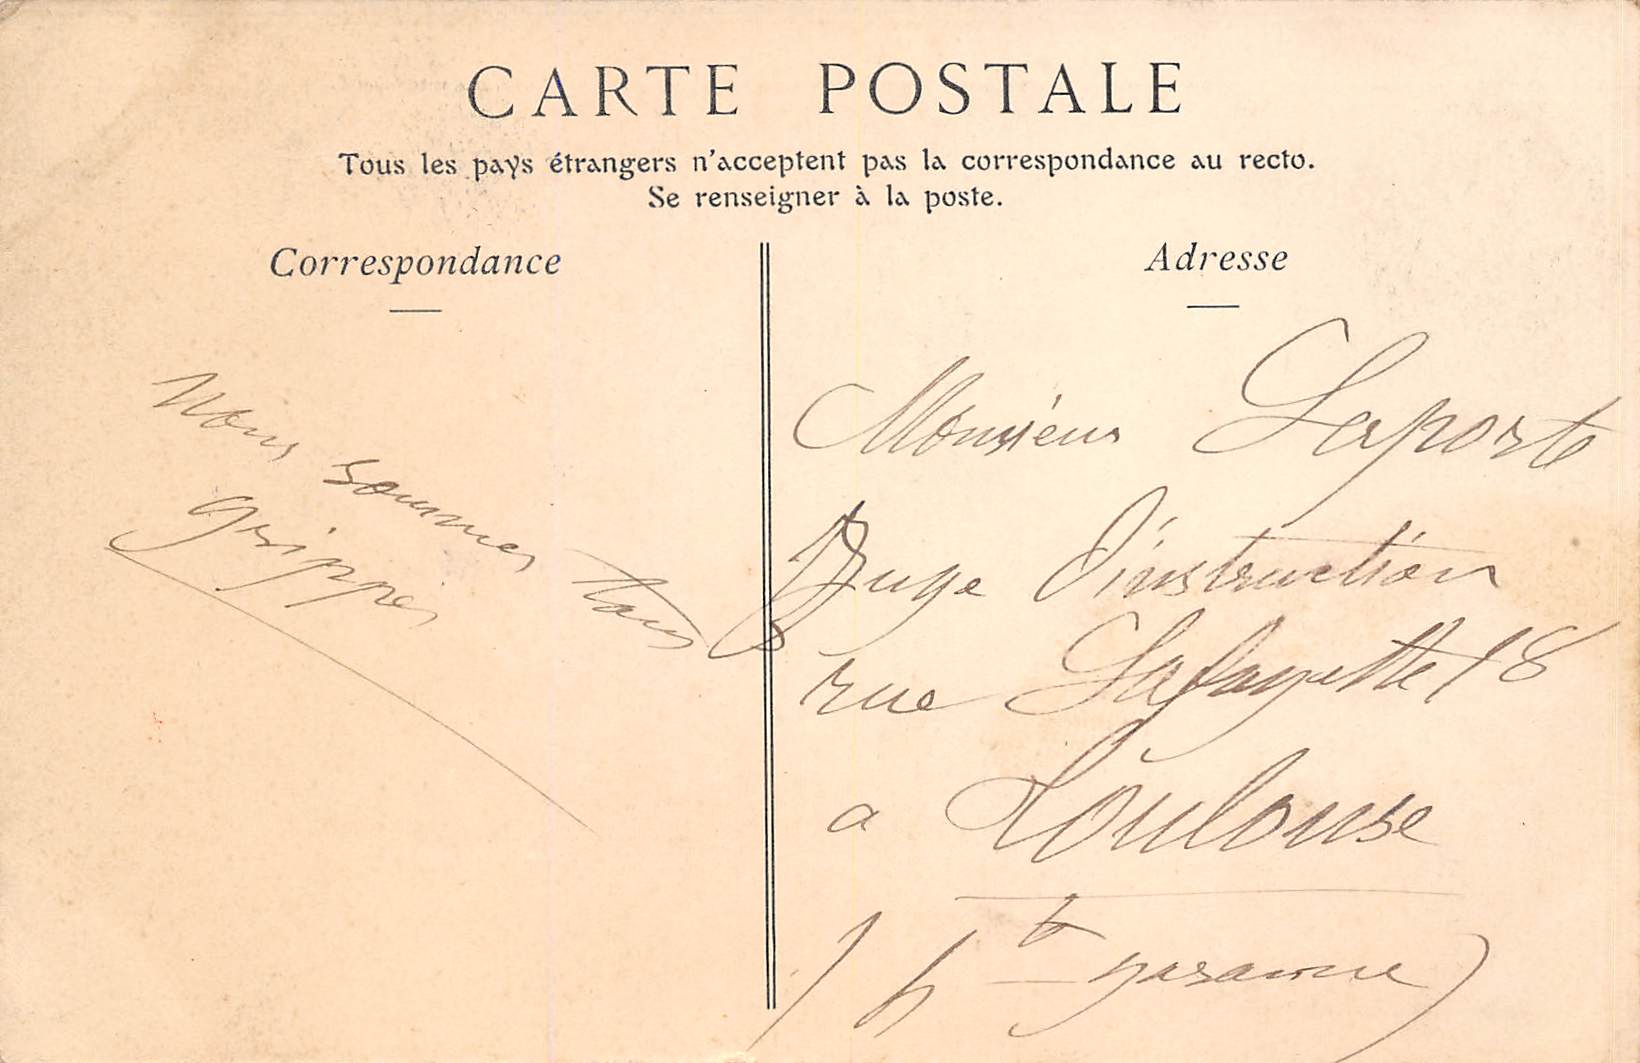 CARTE POSTALE
Tous les pays étrangers n'acceptent pas la correspondance au recto.
Se renseigner à la poste.
Correspondance
Nous sommes tous
grippés
Adresse
Monsieur Laporte
Juge d'instruction
rue Lafayette 18
a Toulouse
(hte garonne)